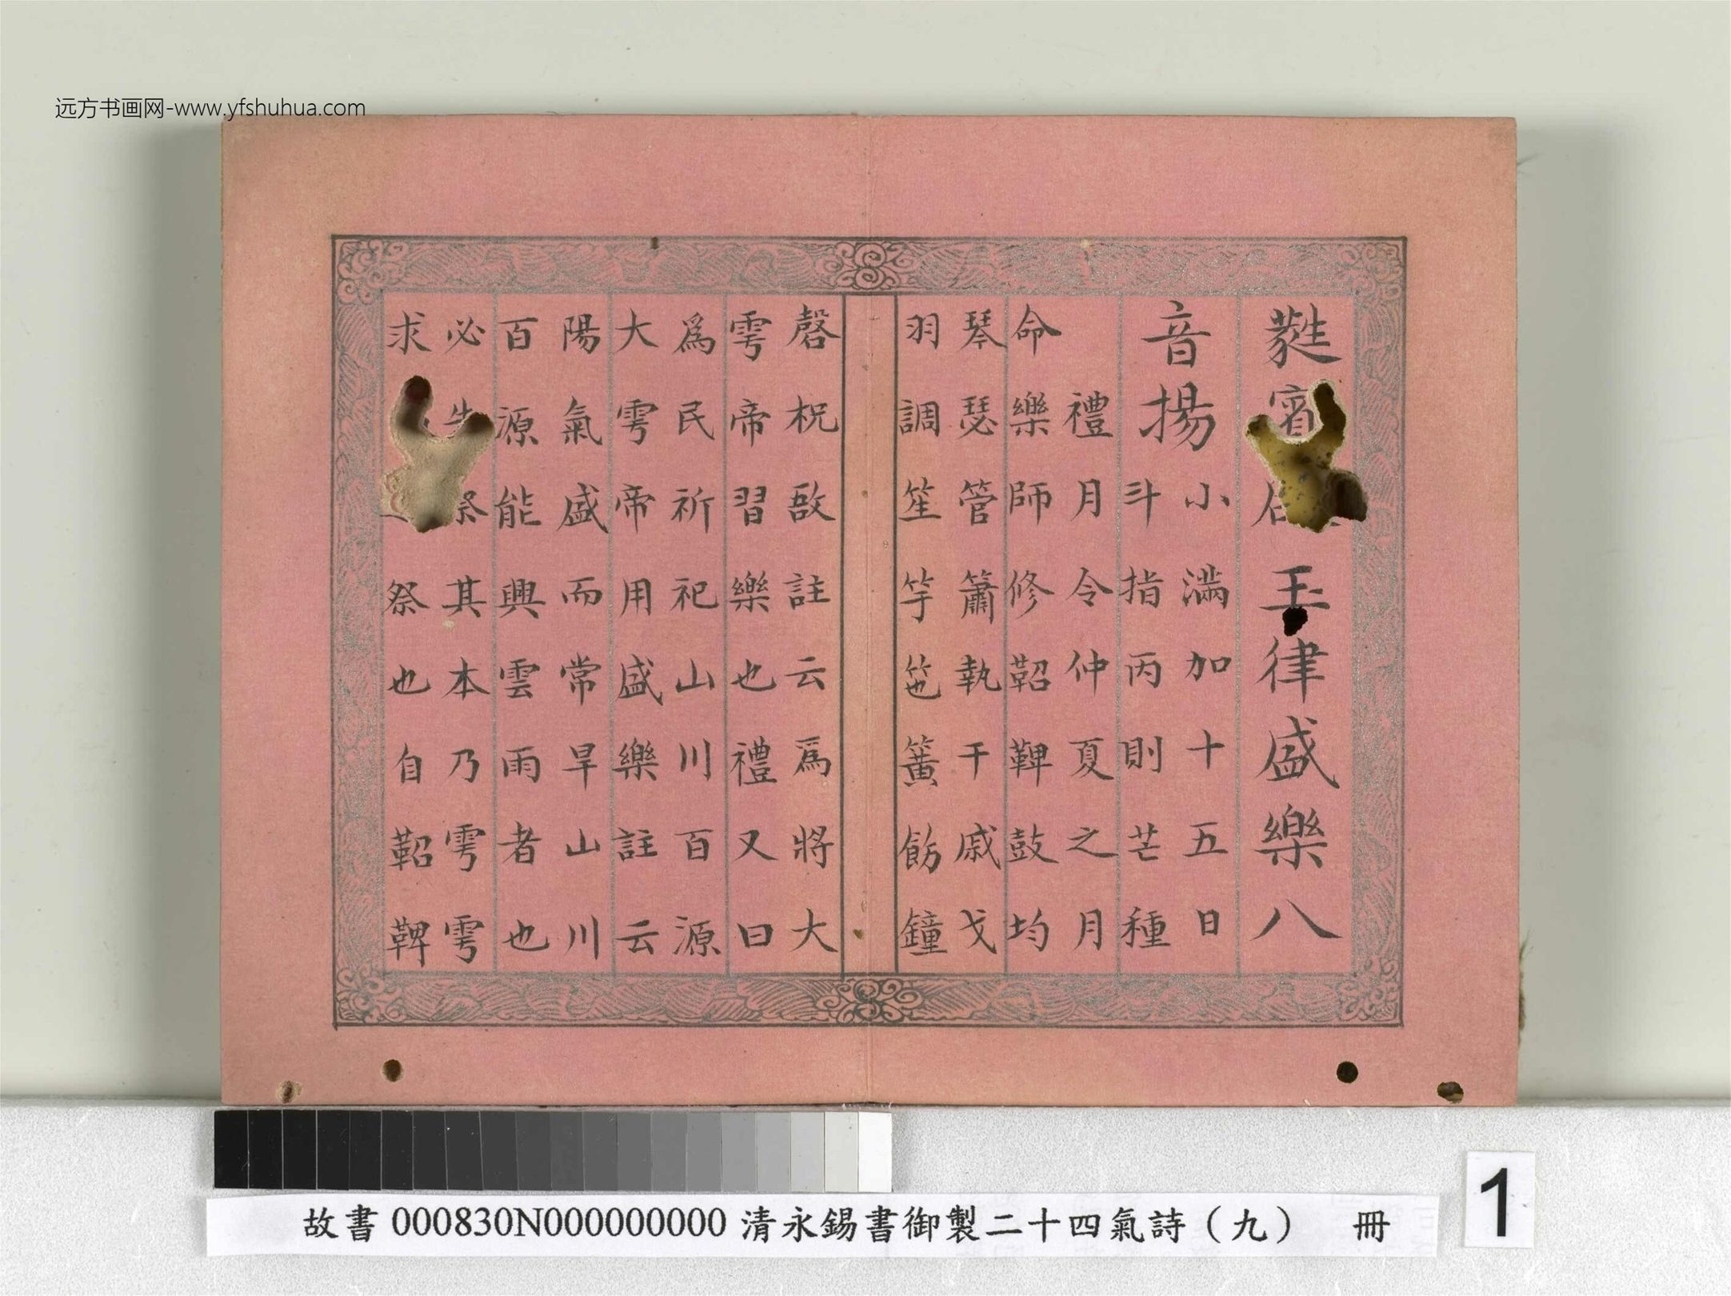 远方书画网-www.yfshuhua.com
蕤賓 玉律盛樂八
音揚
小滿加十五日
斗指丙則芒種
禮月令仲夏之月
命樂師修鞀鞞鼓均
琴瑟管簫執干戚戈
羽調笙竽箎簧飭鐘
磬柷敔註云為將大
雩帝習樂也禮又曰
為民祈祀山川百源
大雩帝用盛樂註云
陽氣盛而常旱山川
百源能興雲雨者也
必先祭其本乃雩雩
求 祭也自鞀鞞
故書 000830N000000000 清永錫書御製二十四氣詩（九） 冊
1